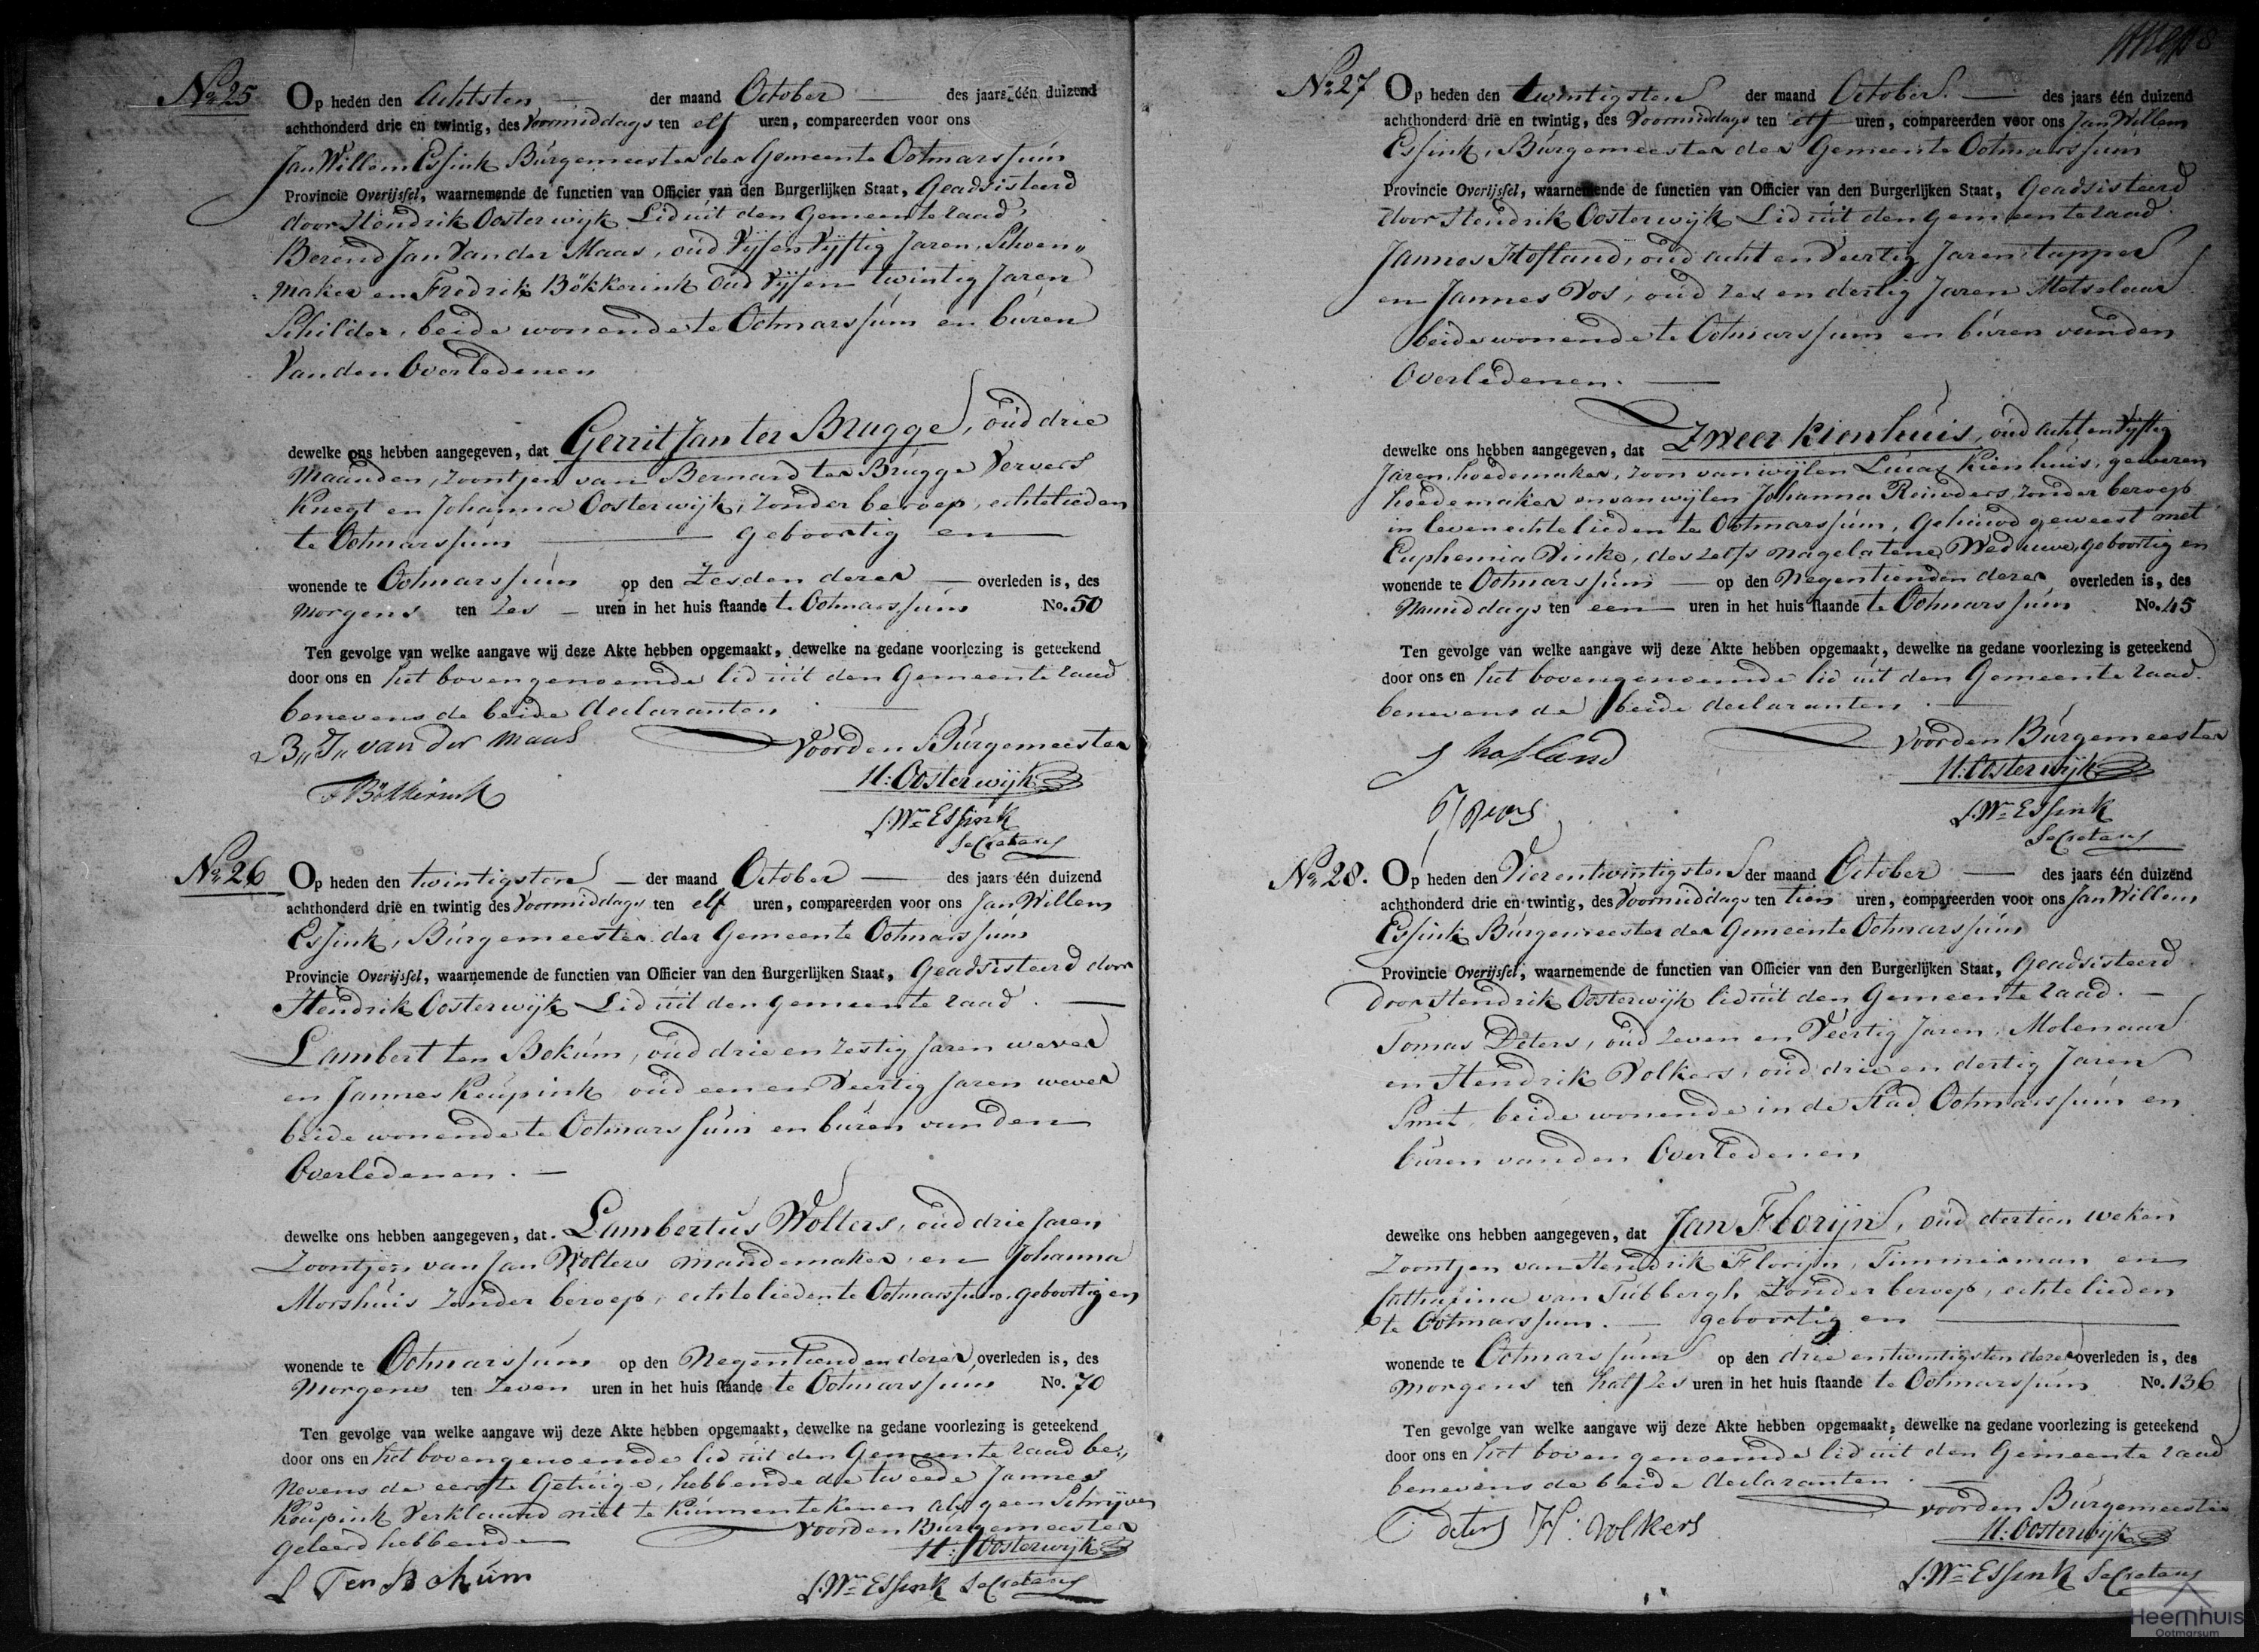 No 25
Op heden den Achtsten der maand October des jaars één duizend
achthonderd drie en twintig, des Voormiddags ten elf uren, compareerden voor ons
Jan Willem Essink Burgemeester der Gemeente Ootmarssum
Provincie Overijssel, waarnemende de functien van Officier van den Burgerlijken Staat, Geadsisteerd
door Hendrik Oosterwijk Lid uit den Gemeente raad,
Berend Jan van der Maas, oud Vijf en Vijftig Jaren, Schoen„
maker en Fredrik Bökkerink oud Vijf en twintig Jaren
Schilder, beide wonende te Ootmarssum en buren
Van den Overledenen
dewelke ons hebben aangegeven, dat Gerrit Jan ter Brugge, oud drie
Maanden, Zoontjen van Bernard ter Brugge Ververs
Knegt en Johanna Oosterwijk, zonder beroep, echtelieden
te Ootmarssum geboortig en
wonende te Ootmarssum op den Zesden dezer overleden is, des
Morgens ten Zes uren in het huis staande te Ootmarssum No. 50
Ten gevolge van welke aangave wij deze Akte hebben opgemaakt, dewelke na gedane voorlezing is geteekend
door ons en het bovengenoemde lid uit den Gemeente raad
benevens de beide declaranten
B„ J„ van der Maas
Voor den Burgemeester
H: Oosterwijk
F Bökkerink
J. Wm Essink
Secretaris
No 26
Op heden den twintigsten der maand October des jaars één duizend
achthonderd drie en twintig des Voormiddags ten elf uren, compareerden voor ons Jan Willem
Essink, Burgemeester der Gemeente Ootmarssum
Provincie Overijssel, waarnemende de functien van Officier van den Burgerlijken Staat, Geadsisteerd door
Hendrik Oosterwijk Lid uit den gemeente raad.
Lambert ten Bokum, oud drie en zestig Jaren wever
en Jannes Keupink oud een en Veertig Jaren wever
beide wonende te Ootmarssum en buren van den
Overledenen.
dewelke ons hebben aangegeven, dat. Lambertus Wolters, oud drie Jaren
Zoontjen van Jan Wolters mandemaker en Johanna
Morshuis zonder beroep, echtelieden te Ootmarssum, geboortig en
wonende te Ootmarssum op den Negentienden dezer overleden is, des
Morgens ten Zeven uren in het huis staande te Ootmarssum No. 70
Ten gevolge van welke aangave wij deze Akte hebben opgemaakt, dewelke na gedane voorlezing is geteekend
door ons en het bovengenoemde lid uit den Gemeente raad be„
nevens de eerste Getuige, hebbende de tweede Jannes
Keupink Verklaard niet te kunnen tekenen als geen Schrijven
geleerd hebbende
Voor den Burgemeester
H: Oosterwijk
L Ten Bokum
J. Wm Essink Secretaris
No 27
Op heden den twintigsten der maand October. des jaars één duizend
achthonderd drie en twintig, des Voormiddags ten elf uren, compareerden voor ons Jan Willem
Essink, Burgemeester der Gemeente Ootmarssum
Provincie Overijssel, waarnemende de functien van Officier van den Burgerlijken Staat, Geadsisteerd
door Hendrik Oosterwijk Lid uit den gemeente raad.
Jannes Hofland, oud acht en Veertig Jaren, tapper
en Jannes Vos, oud Zes en dertig Jaren Metselaar
beide wonende te Ootmarssum en buren van den
Overledenen.
dewelke ons hebben aangegeven, dat Zweer Kienhuis, oud acht en Vijftig
Jaren, hoedemaker, zoon van wijlen Lucas Kienhuis, gewezen
hoedemaker en van wijlen Johanna Reinders, zonder beroep
in leven echtelieden te Ootmarssum, Gehuwd geweest met
Euphemia Vinke, deszelfs nagelatene Weduwe, geboortig en
wonende te Ootmarssum op den Negentienden dezer overleden is, des
Namiddags ten een uren in het huis staande te Ootmarssum No. 45
Ten gevolge van welke aangave wij deze Akte hebben opgemaakt, dewelke na gedane voorlezing is geteekend
door ons en het bovengenoemde lid uit den Gemeente raad.
benevens de beide declaranten.
Voor den Burgemeester
J hofland
H: Oosterwijk
J. Wm Essink
Secretaris
No 28.
Op heden den Vier en twintigsten der maand October des jaars één duizend
achthonderd drie en twintig, des Voormiddags ten tien uren, compareerden voor ons Jan Willem
Essink Burgemeester der Gemeente Ootmarssum
Provincie Overijssel, waarnemende de functien van Officier van den Burgerlijken Staat, Geadsisteerd
door Hendrik Oosterwijk lid uit den Gemeente raad.
Tomas Deters, oud zeven en Veertig Jaren, Molenaar
en Hendrik Volkers, oud drie en dertig Jaren
Smit, beide wonende in de Stad Ootmarssum en
buren van den Overledenen
dewelke ons hebben aangegeven, dat Jan Florijn, oud dertien weken
Zoontjen van Hendrik Florijn, Timmerman en
Catharina van Tubbergh, Zonder beroep, echtelieden
te Ootmarssum. geboortig en
wonende te Ootmarssum op den drie entwintigsten dezer overleden is, des
Morgens ten half Zes uren in het huis staande te Ootmarssum No. 136
Ten gevolge van welke aangave wij deze Akte hebben opgemaakt, dewelke na gedane voorlezing is geteekend
door ons en het bovengenoemde lid uit den Gemeente raad
benevens de beide declaranten.
voor den Burgemeester
deters H: Volkers
H: Oosterwijk
J. Wm Essink Secretaris
Heemhuis
Ootmarsum